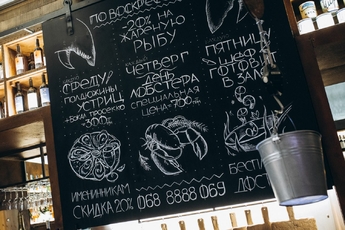 ПО ВОСКРЕСЕ
-20% НА
ЖАРЕНУЮ
РЫБУ
СРЕДУ/
ПОЛДЮЖИНЫ
УСТРИЦ
+БОКАЛ ПРОСЕККО
300-
ЧЕТВЕРГ
ДЕНЬ
ЛОБСТЕРА
СПЕЦИАЛЬНАЯ
ЦЕНА -700
ПЯТНИЦУ
ШЕФ
ГОТОВИ
В ЗА
ИМЕНИННИКАМ
СКИДКА 20%
068 8888 069
БЕСП
ДОС